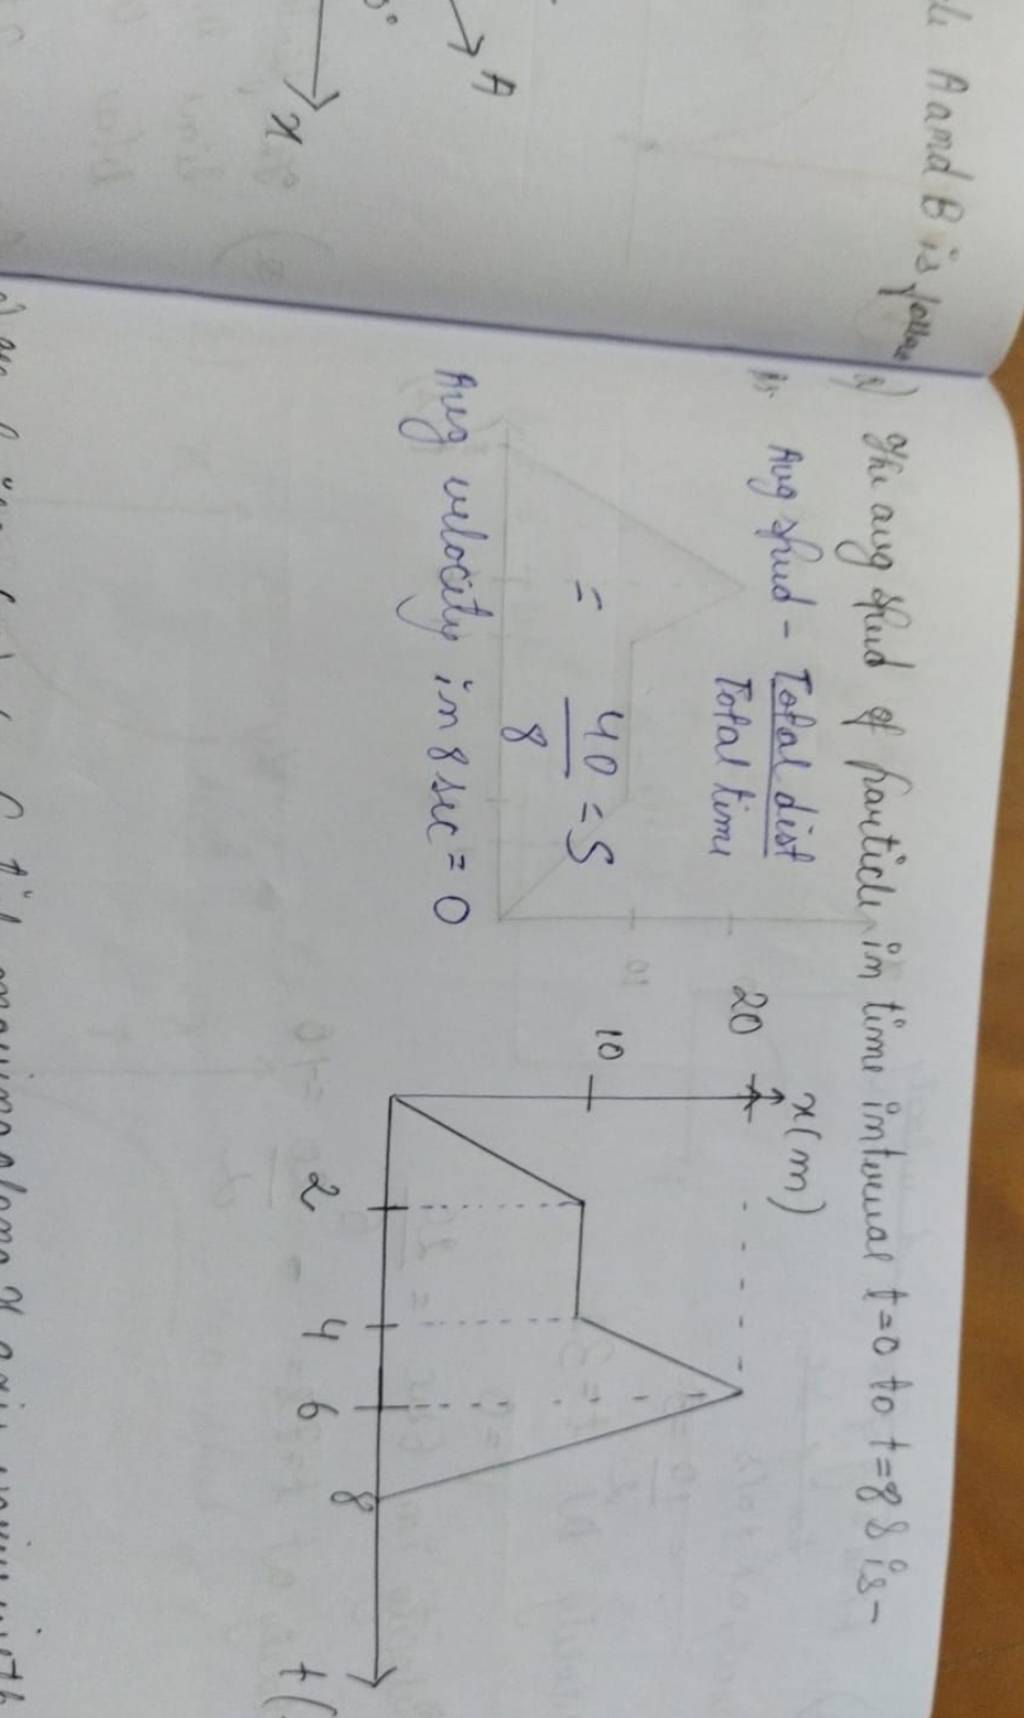 A
x
A and B is
The avg speed of particle in time interval t=0 to t=8 s is-
Avg speed - Total dist
Total time
= 40 = 5
8
Avg velocity in 8 sec = 0
x(m)
20
10
2 4 6 8
t(
moving along x axis